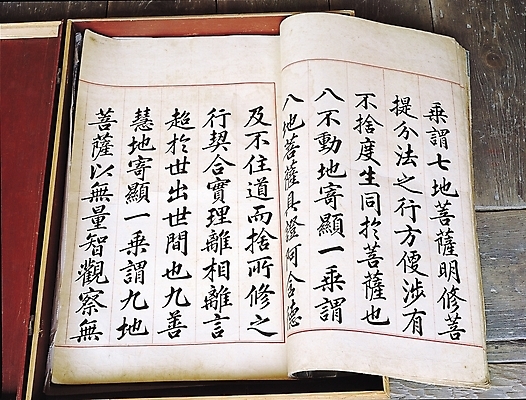 乘謂七地菩薩明修菩
提分法之行方便涉有
不捨度生同於菩薩也
八不動地寄顯一乘謂
八地菩薩真證阿含德
及不住道而捨所修之
行契合實理離相離言
超於世出世間也九善
慧地寄顯一乘謂九地
菩薩以無量智觀察無